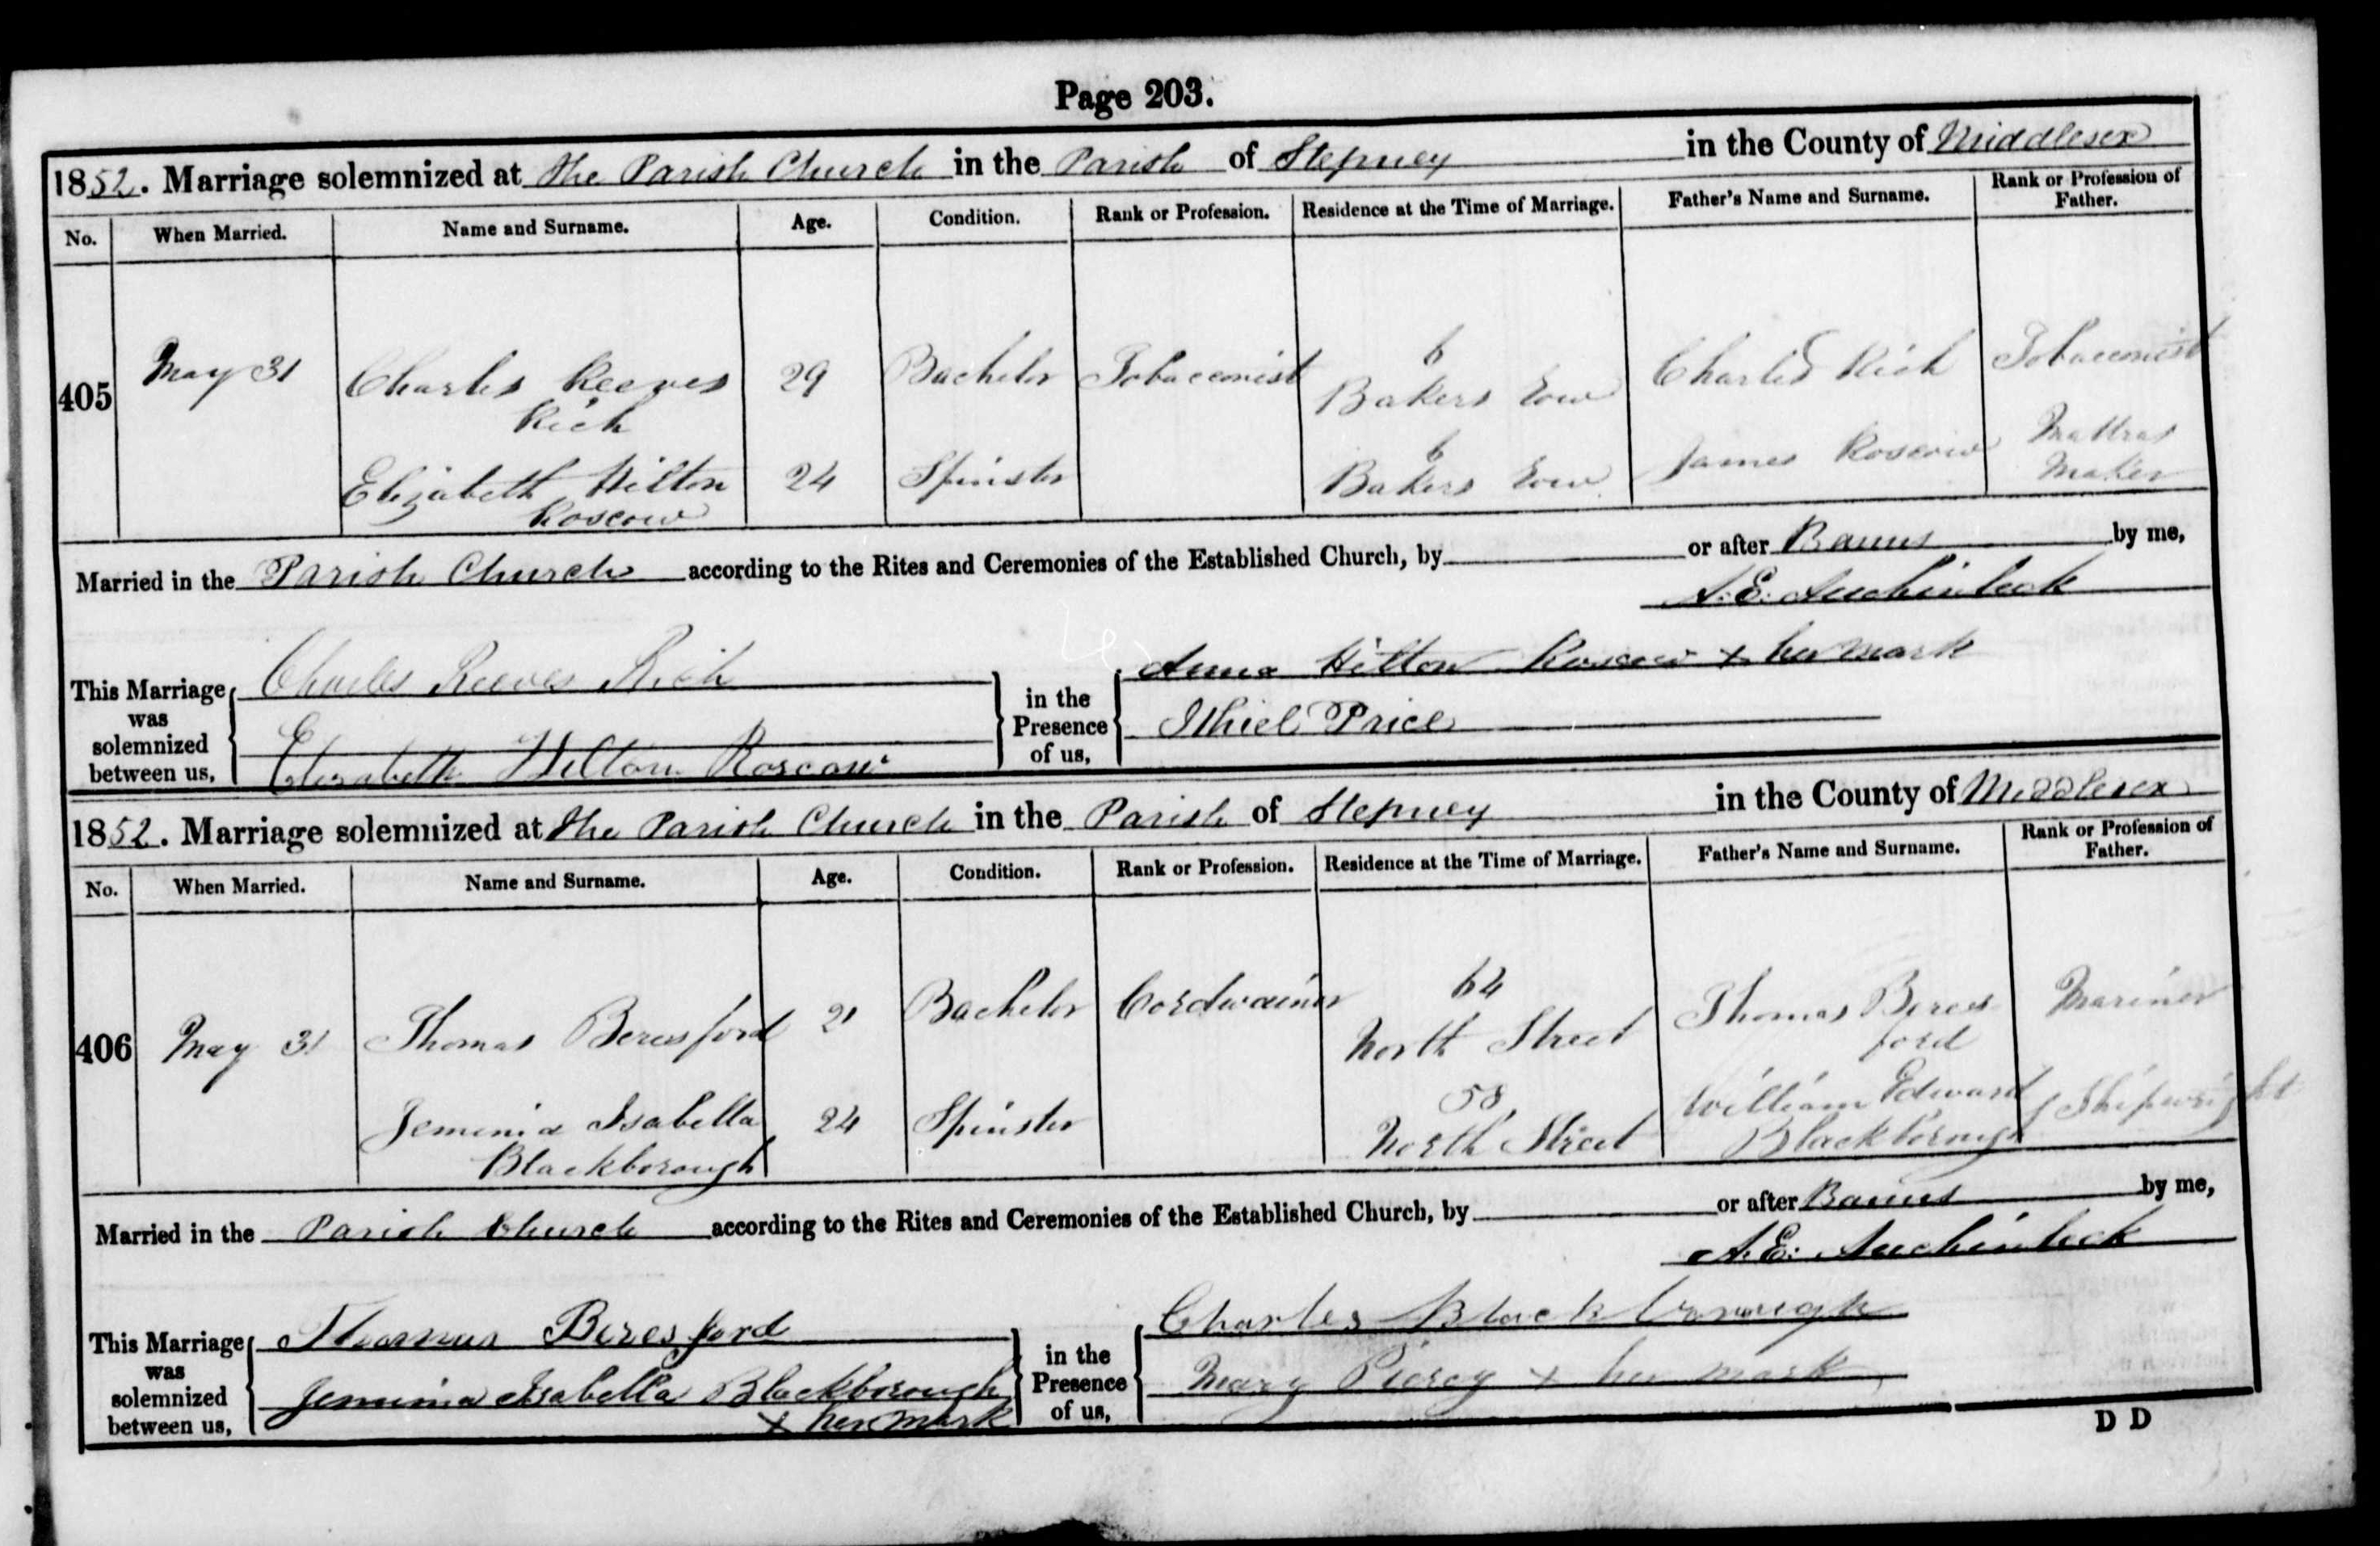 Page 203.
1852. Marriage solemnized at the Parish Church in the Parish of Stepney in the County of Middlesex
No. When Married. Name and Surname. Age. Condition. Rank or Profession. Residence at the Time of Marriage. Father's Name and Surname. Rank or Profession of Father.
405 May 31 Charles Reeves Rich 29 Bachelor Tobacconist 6 Bakers Row Charles Rich Tobacconist
Elizabeth Hilton Roscow 24 Spinster 6 Bakers Row James Roscow Mattras Maker
Married in the Parish Church according to the Rites and Ceremonies of the Established Church, by or after Banns by me,
A. E. Auchinleck
This Marriage was solemnized between us, Charles Reeves Rich
Elizabeth Hilton Roscow
in the Presence of us, Anna Hilton Roscow x her mark
Ithiel Price
1852. Marriage solemnized at the Parish Church in the Parish of Stepney in the County of Middlesex
No. When Married. Name and Surname. Age. Condition. Rank or Profession. Residence at the Time of Marriage. Father's Name and Surname. Rank or Profession of Father.
406 May 31 Thomas Beresford 21 Bachelor Cordwainer 64 North Street Thomas Beresford Mariner
Jemima Isabella Blackborough 24 Spinster 58 North Street William Edward Blackborough Shipwright
Married in the Parish Church according to the Rites and Ceremonies of the Established Church, by or after Banns by me,
A. E. Auchinleck
This Marriage was solemnized between us, Thomas Beresford
Jemima Isabella Blackborough
x her mark
in the Presence of us, Charles Blackborough
Mary Piercy x her mark
D D